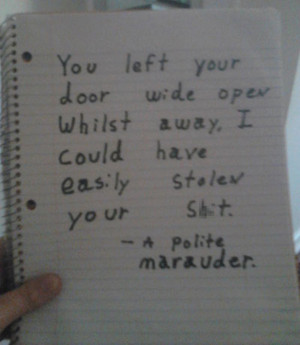 You left your
door wide open
Whilst away, I
could have
easily stolen
your Shit.
- A polite
marauder.